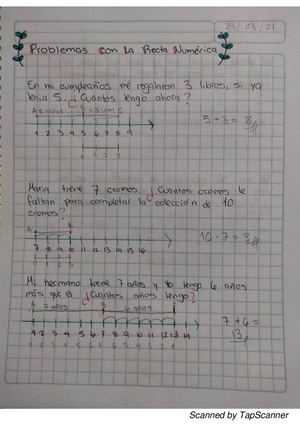 23/03/21
Problemas con La Recta Numérica
En mi cumpleaños me regalaron 3 libros, si ya
tenia 5. ¿Cuántos tengo ahora?
5+3=8
1 2 3 4 5 6 7 8 9
0 1 2 3
Maria tiene 7 cromos. ¿Cuantos cromos le
faltan para completar la colección de 10
cromos?
10-7=3
7 8 9 10 11 12 13 14 15 16
0 1 2 3
Mi hermano tiene 7 años y yo tengo 6 años
más que el ¿Cuantos años tengo?
7 años 6 años
7+6=
13
1 2 3 4 5 6 7 8 9 10 11 12 13 14
Scanned by TapScanner